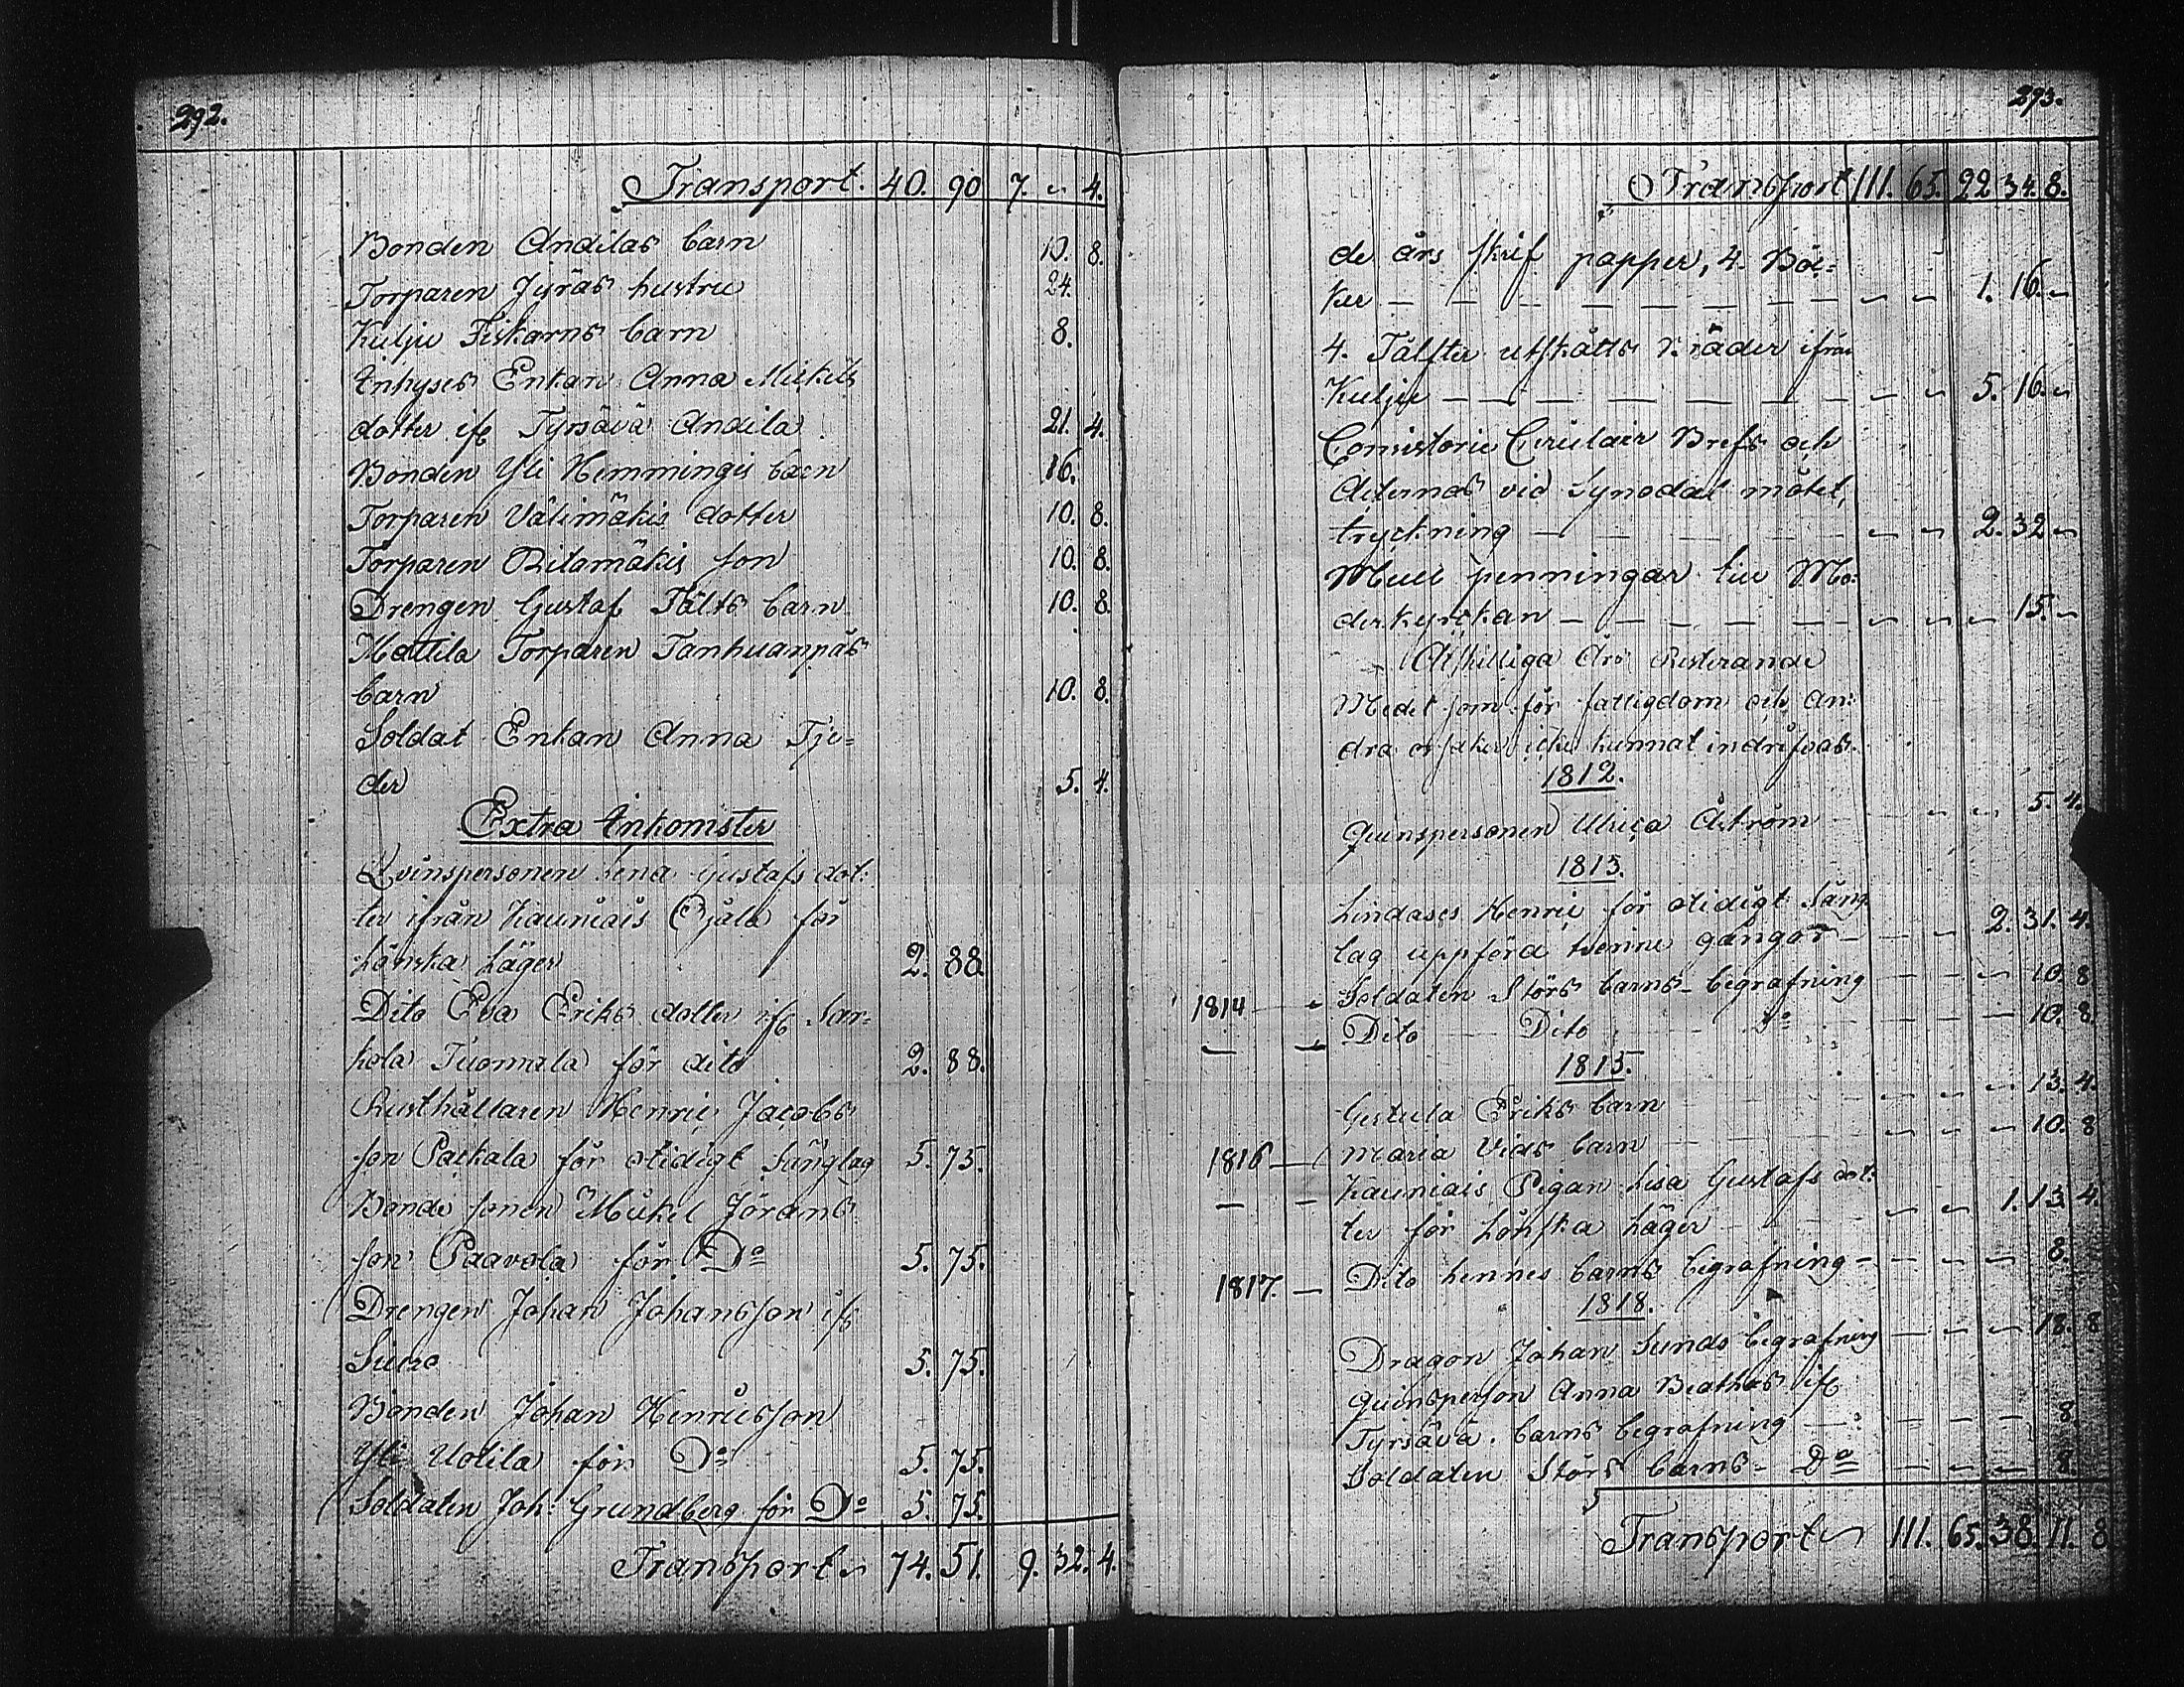 292.
Transport. 40. 90 7. " 4.
Bonden Andilas barn 10. 8.
Torparen Jyräs hustru 24.
Kulju Fiskarns barn 8.
Inhyses Enkan Anna Mickels
dotter ifr Tyrsävä Andila 21. 4.
Bonden Yli Hemmingis barn 16.
Torparen Välimäkis dotter 10. 8.
Torparen Ritamäkis son 10. 8.
Drengen Gustaf Fälts barn 10. 8.
Mattila Torparen Tanhuanpäs
barn 10. 8.
Soldat Enkan Anna Tje=
der 5. 4.
Extra Inkomster
Qvinspersonen Lena Gustafs dot:
ter ifrån Kauniais Ojala för
Lönska Läger 2. 88.
Dito Eva Eriks dotter ifr Sar=
kola Tuomala för dito 2. 88.
Rusthållaren Henric Jacobs
son Paikala för otidigt Sänglag 5. 75.
Bonde sonen Mickel Jörans
son Paavola för Do 5. 75.
Drengen Johan Johansson ifr
Suino 5. 75.
Bonden Johan Henricsson
Yli Uotila för Do 5. 75.
Soldaten Joh: Grundberg för Do 5. 75.
Transport 74. 51. 9. 32. 4.
293.
Transport 111. 65. 22 34. 8.
de års skrif papper, 4. Böc=
ker — — — 1. 16. "
4. Tålfter utskåtts bräder ifrån
Kulju — — — 5. 16. "
Consistorii Circulair Brefs och
Acternas vid Synodal mötet,
tryckning — — — 2. 32 "
Mull penningar til Mo=
derkyrkan — — — 15. "
Åtskilliga Års Resterande
Medel som för fattigdom och an=
dra orsaker icke kunnat indrifvas.
1812.
Qvinspersonen Ulrica Åström 5. 4.
1813.
Lindases Henric för otidigt Säng
lag uppföra tvenne gångor — 2. 31. 4.
1814 — Soldaten Störs barns begrafning — 10. 8
— — Dito — Dito — Do — 10. 8.
1815.
Gertula Eriks barn — 13. 4.
1816 — Maria Vids barn — 10. 8
— — Kauniais Pigan Lisa Gustafs dot:
ter för Lönska Läger — 1. 13. 4
1817. — Dito hennes barns begrafning — 8.
1818.
Dragon Johan Sunds begrafning — 18. 8
Qvinsperson Anna Beathas ifr
Tyrsävä barns begrafning — 8.
Soldaten Störs barns Do — 8.
Transport 111. 65. 38. 11. 8